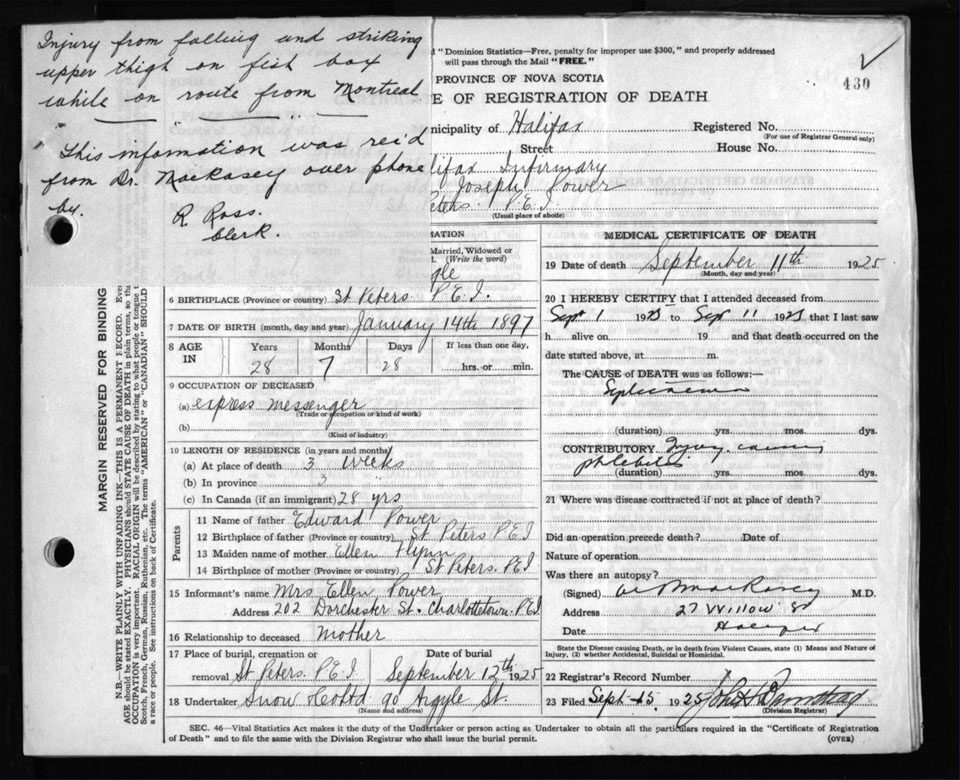 Injury from falling and striking
upper thigh on fish box
while on route from Montreal
This information was rec'd
from Dr. MacKasey over phone
by.
R Ross.
Clerk.
"Dominion Statistics—Free, penalty for improper use $300," and properly addressed
will pass through the Mail "FREE."
430
PROVINCE OF NOVA SCOTIA
E OF REGISTRATION OF DEATH
nicipality of Halifax Registered No.
(For use of Registrar General only)
Street House No.
lifax Infirmary
Joseph Power
eters. P.E.I
(Usual place of abode)
MATION
Married, Widowed or
(Write the word)
gle
MARGIN RESERVED FOR BINDING
N.B.—WRITE PLAINLY WITH UNFADING INK—THIS IS A PERMANENT RECORD. Eve
AGE should be stated EXACTLY. PHYSICIANS should STATE CAUSE OF DEATH in plain terms, so tha
OCCUPATION is very important. RACIAL ORIGIN will be described by stating to what people or tongue t
Scotch, French, German, Russian, Ruthenian, etc. The terms "AMERICAN" or "CANADIAN" SHOULD
a race or people. See instructions on back of Certificate.
6 BIRTHPLACE (Province or country) St Peters P.E.I.
7 DATE OF BIRTH (month, day and year) January 14th 1897
8 AGE IN Years Months Days If less than one day,
28 7 28 hrs. or min.
9 OCCUPATION OF DECEASED
(a) express messenger
(Trade or occupation or kind of work)
(b)
(Kind of industry)
10 LENGTH OF RESIDENCE (in years and months)
(a) At place of death 3 weeks
(b) In province 3 "
(c) In Canada (if an immigrant) 28 yrs
Parents
11 Name of father Edward Power
12 Birthplace of father (Province or country) St Peters P.E.I
13 Maiden name of mother Ellen Flynn
14 Birthplace of mother (Province or country) St Peters. P.E.I
15 Informant's name Mrs Ellen Power
Address 202 Dorchester St. Charlottetown. P.E.I
16 Relationship to deceased mother
17 Place of burial, cremation or Date of burial
removal St Peters. P.E.I September 12th 1925
18 Undertaker Snow &Co Ltd 90 Argyle St.
(Name and address)
MEDICAL CERTIFICATE OF DEATH
19 Date of death September 11th 1925
(Month, day and year)
20 I HEREBY CERTIFY that I attended deceased from
Sept 1 1925 to Sept 11 1925 that I last saw
h alive on 19 and that death occurred on the
date stated above, at m.
The CAUSE of DEATH was as follows:—
Septicaemia
(duration) yrs. mos. dys.
CONTRIBUTORY Injury causing
phlebitis
(duration) yrs. mos. dys.
21 Where was disease contracted if not at place of death?
Did an operation precede death? Date of
Nature of operation
Was there an autopsy?
(Signed) MacKasey M.D.
Address 27 Willow St
Date Halifax
State the Disease causing Death, or in death from Violent Causes, state (1) Means and Nature of
Injury, (2) whether Accidental, Suicidal or Homicidal.
22 Registrar's Record Number
23 Filed Sept 15 1925
(Division Registrar)
SEC. 46—Vital Statistics Act makes it the duty of the Undertaker or person acting as Undertaker to obtain all the particulars required in the "Certificate of Registration
of Death" and to file the same with the Division Registrar who shall issue the burial permit. (OVER)